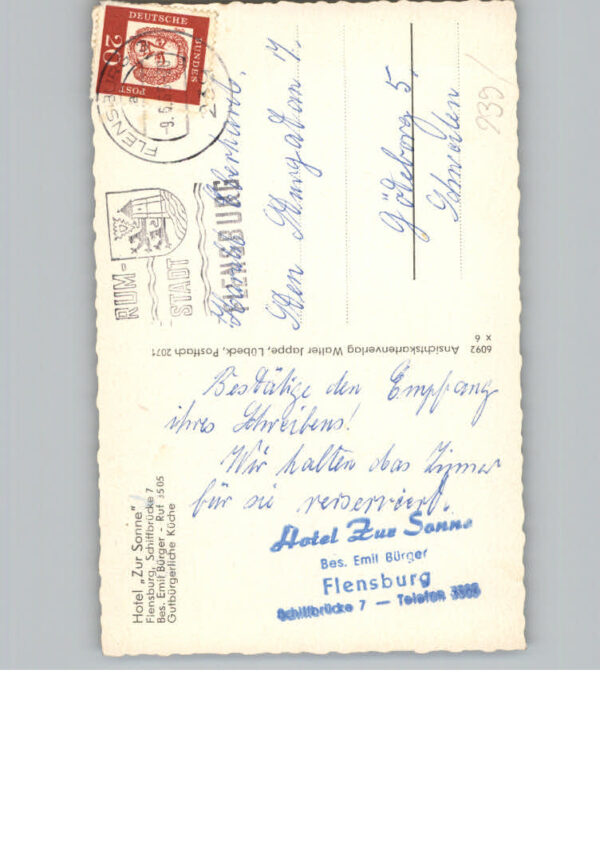 Bestätige den Empfang
ihres Schreibens!
Wir halten das Zimmer
für sie reserviert.
Hotel Zur Sonne
Bes. Emil Bürger
Flensburg
Schiffbrücke 7 — Telefon 3505
Hotel „Zur Sonne"
Flensburg, Schiffbrücke 7
Bes. Emil Bürger - Ruf 3505
Gutbürgerliche Küche
6092 Ansichtskartenverlag Walter Jappe, Lübeck, Postfach 2071
x 6
DEUTSCHE
BUNDES
POST
20
FLENSBURG
RUM-
STADT
FLENSBURG
Eberhard.
Göteborg 5,
Schweden
239/